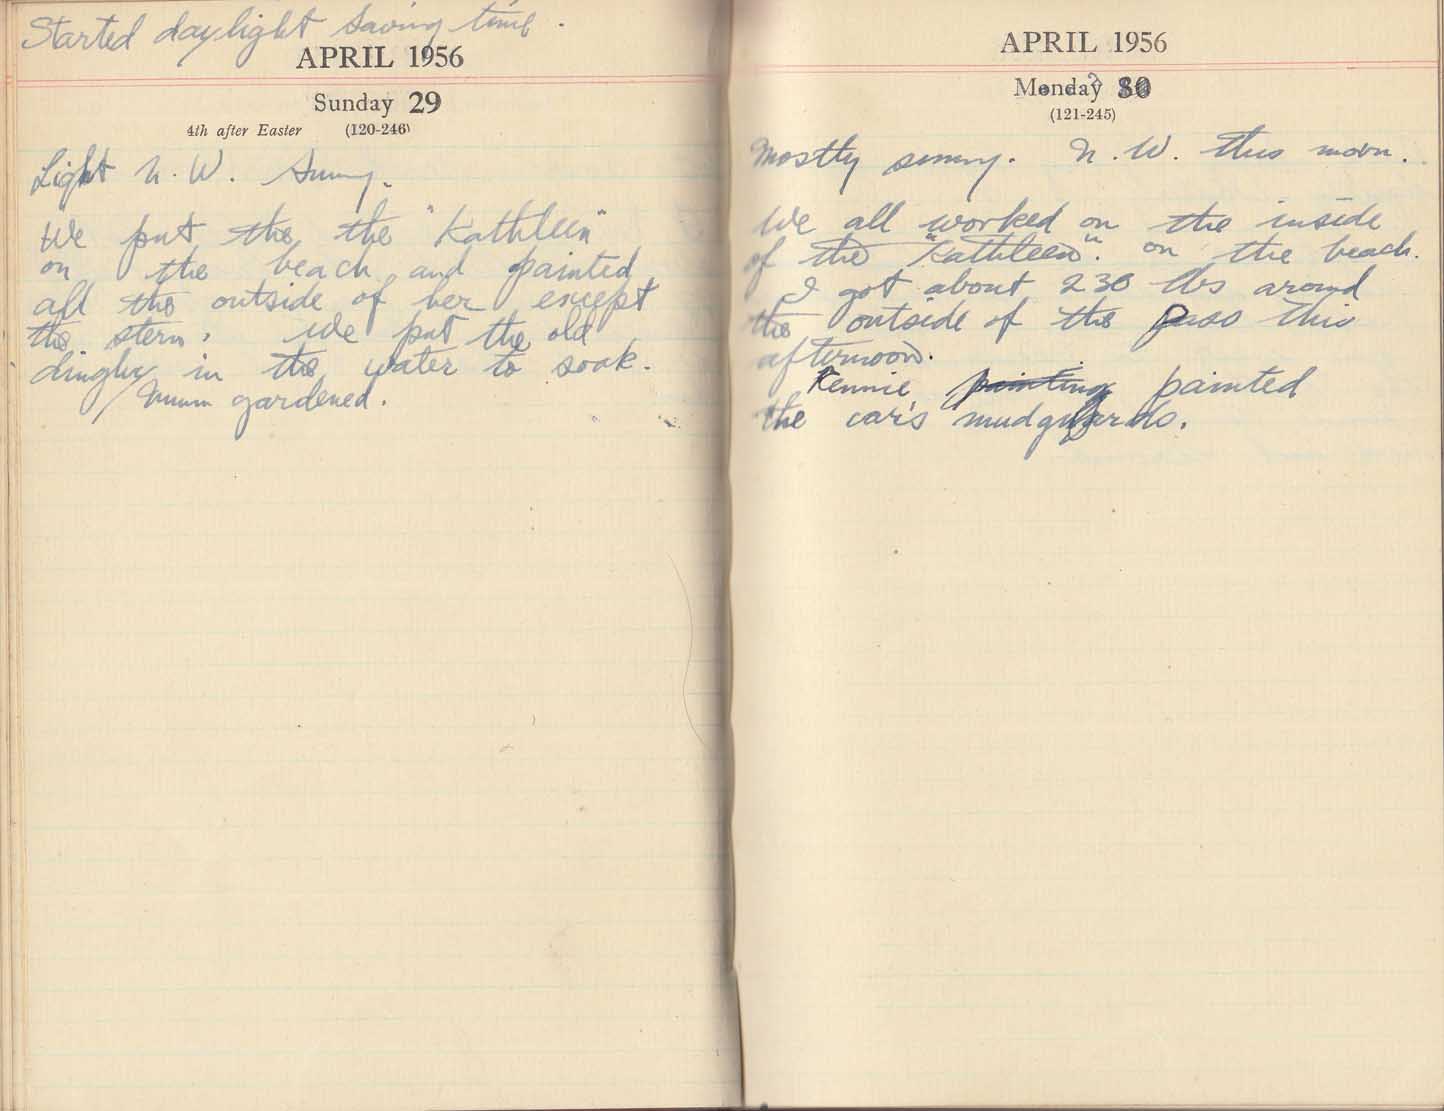 Started daylight saving time.
APRIL 1956
Sunday 29
4th after Easter (120-246)
Light N.W. Sunny.
We put the the "Kathleen"
on the beach and painted
all the outside of her except
the stern. We put the old
dinghy in the water to soak.
Mum gardened.
APRIL 1956
Monday 30
(121-245)
Mostly sunny. N.W. this morn.
We all worked on the inside
of the "Kathleen". on the beach.
I got about 230 lbs around
the outside of the pass this
afternoon.
Kennie, painting painted
the car's mudguards.